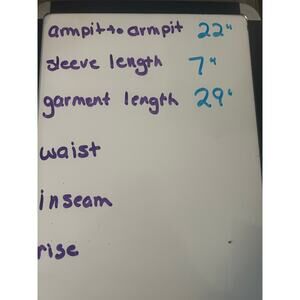 armpit to armpit 22"
sleeve length 7"
garment length 29"
waist
inseam
rise